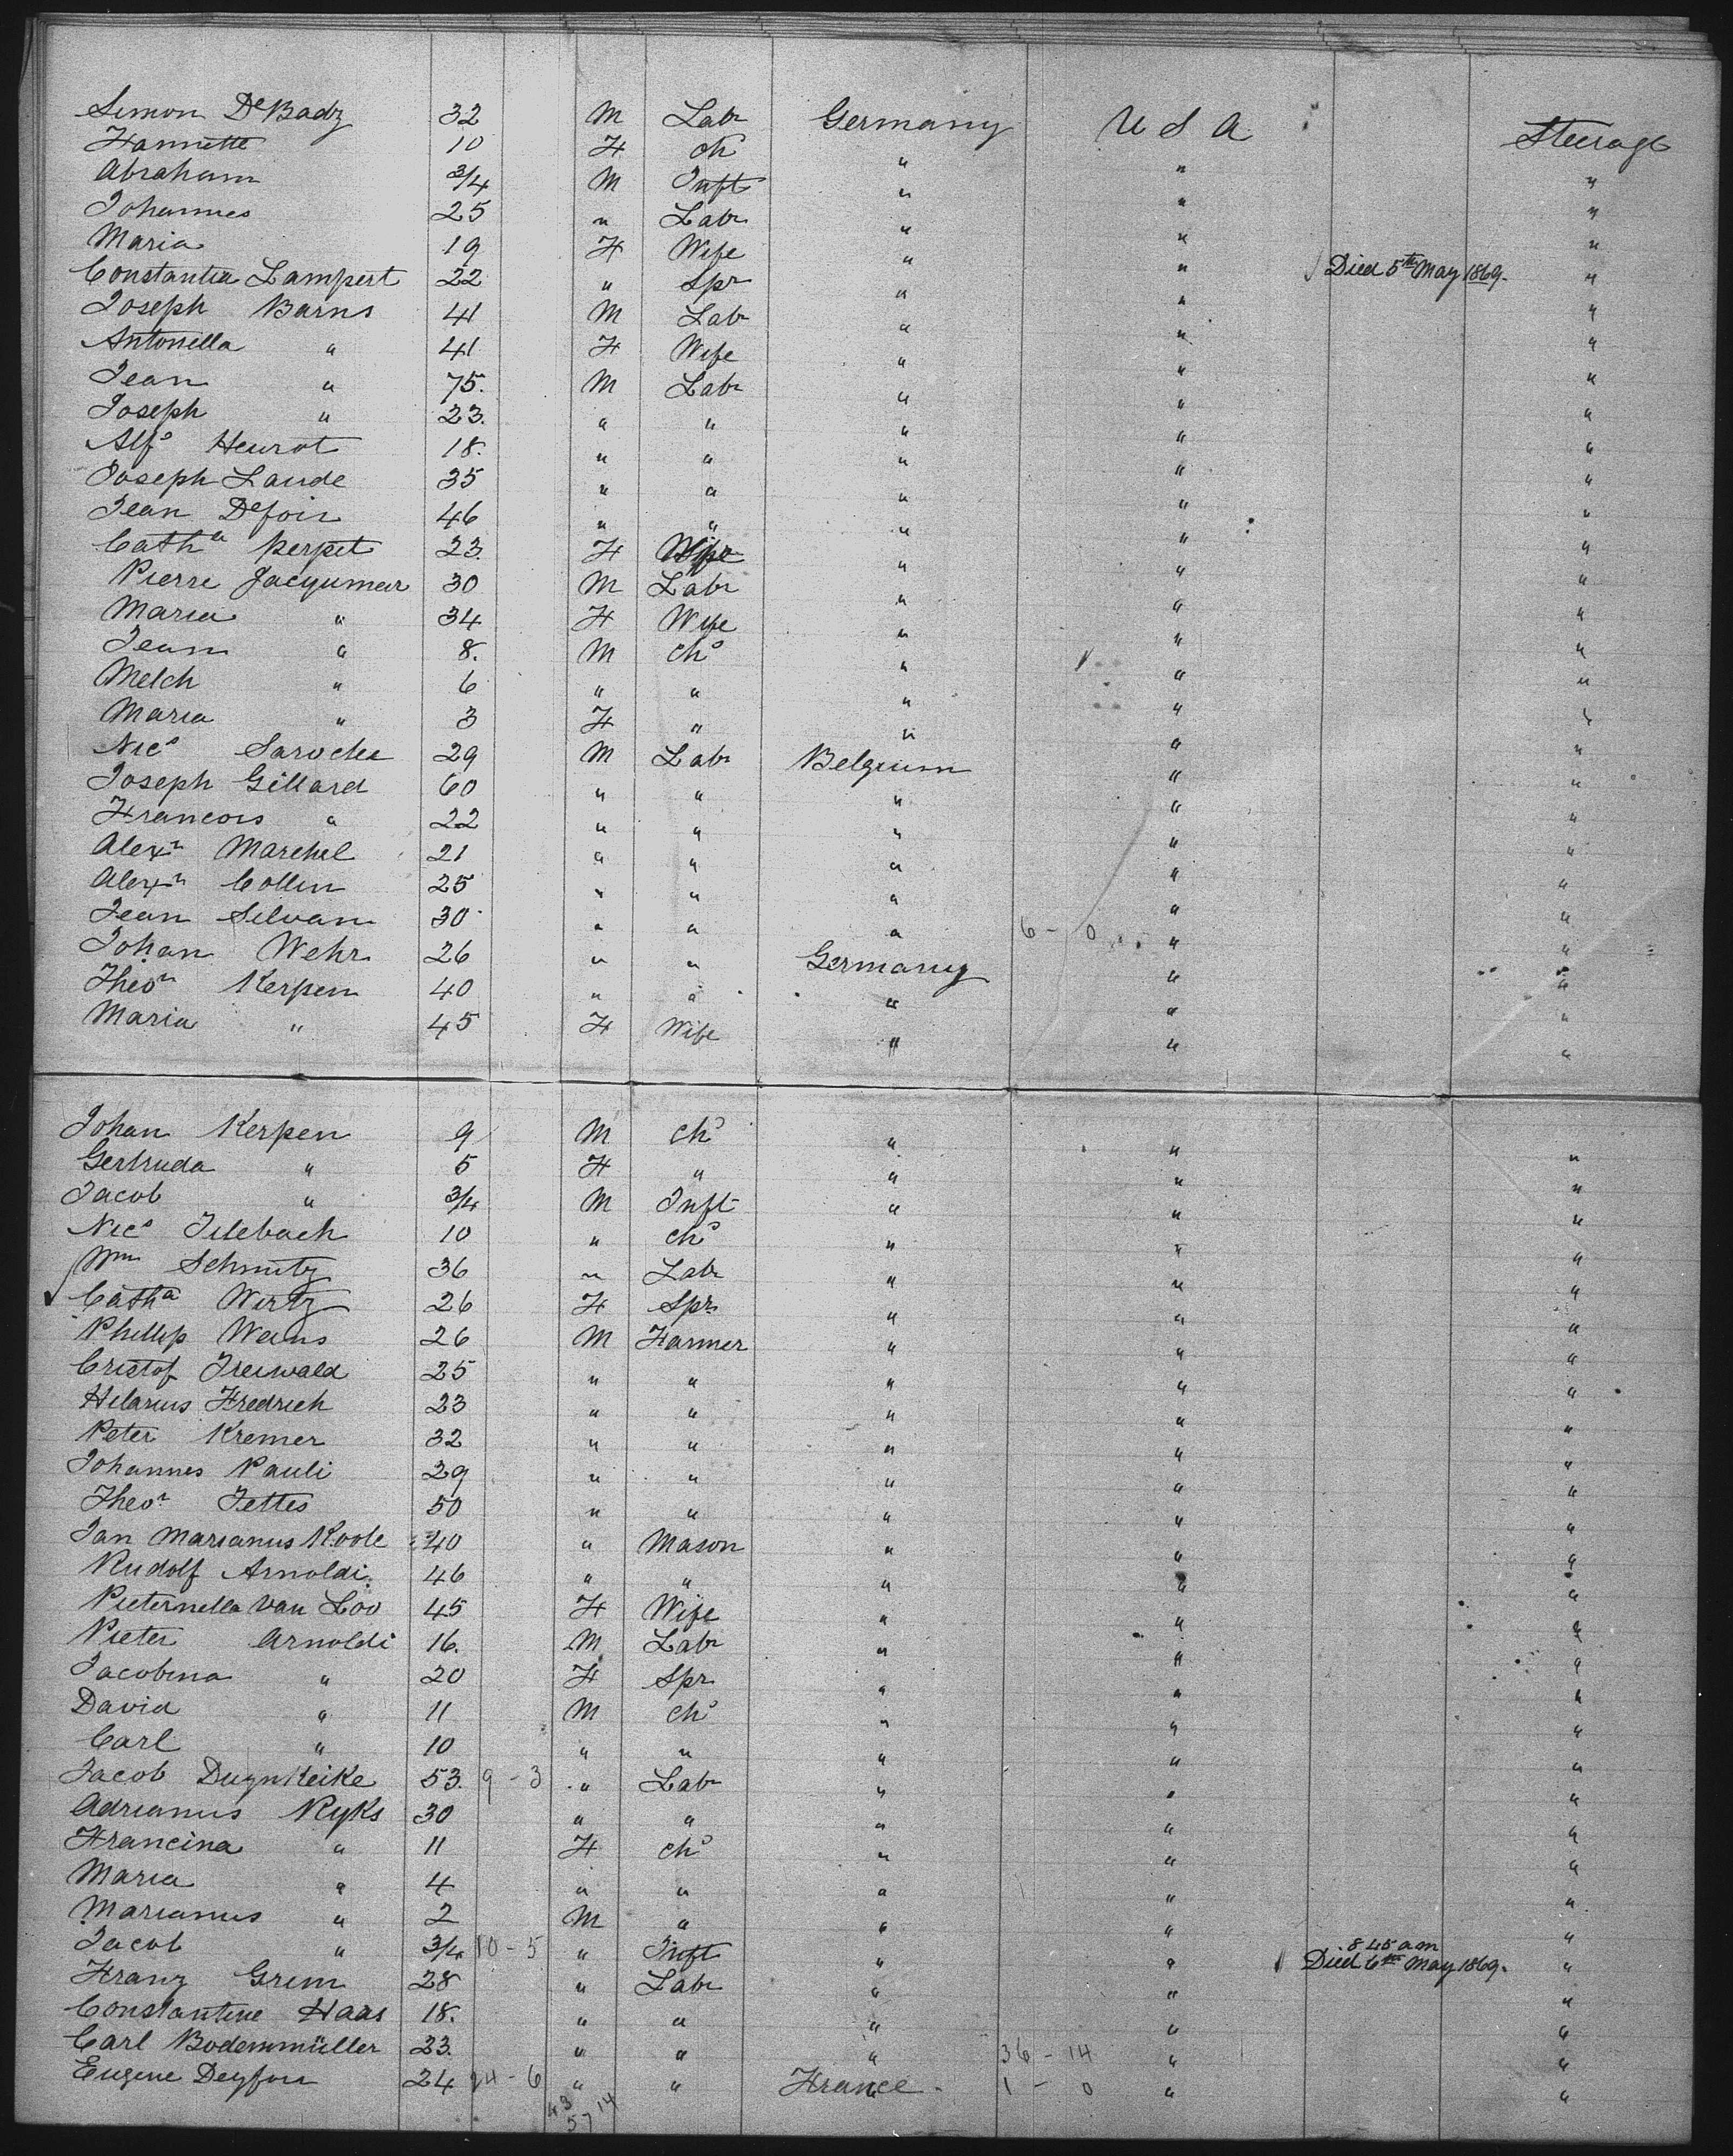 Simon DeBadz 32 M Labr Germany U S A Steerage
Hannette 10 F Ch " " "
Abraham 3/4 M Inft " " "
Johannes 25 " Labr " " "
Maria 19 F Wife " " "
Constantia Lampert 22 " Spr " " Died 5th May 1869. "
Joseph Barns 41 M Labr " " "
Antonella " 41 F Wife " " "
Jean " 75. M Labr " " "
Joseph " 23. " " " " "
Alfd Heurot 18. " " " " "
Joseph Laude 35 " " " " "
Jean Defoin 46 " " " " "
Catha Perpet 23. F " " "
Pierre Jacqumar 30 M Labr " " "
Maria " 34 F Wife " " "
Jean " 8. M Chd " " "
Melch " 6 " " " " "
Maria " 3 F " " " "
Nics Saroche 29 M Labr Belgium " "
Joseph Gillard 60 " " " " "
Francois " 22 " " " " "
Alexr Marchel 21 " " " " "
Alexr Collin 25 " " " " "
Jean Selvan 30 " " " 6 - 0 " "
Johan Wehr 26 " " Germany " "
Theor Kerpen 40 " " " " "
Maria " 45 F Wife " " "
Johan Kerpen 9 M Chd " " "
Gertruda " 5 F " " " "
Jacob " 3/4 M Inft " " "
Nics Tilebach 10 " Chd " " "
Wm Schmitz 36 " Labr " " "
Catha Wirtz 26 F Spr " " "
Phillip Weins 26 M Farmer " " "
Cristof Treiwald 25 " " " " "
Hilarius Fredrich 23 " " " " "
Peter Kremer 32 " " " " "
Johannes Pauli 29 " " " " "
Theor Tettes 50 " " " " "
Jan Marianus Koole 40 " Mason " " "
Rudolf Arnoldi 46 " " " " "
Pieternella Van Loo 45 F Wife " " "
Pieter Arnoldi 16. M Labr " " "
Jacobina " 20 F Spr " " "
David " 11 M Chd " " "
Carl " 10 " " " " "
Jacob Duynkeike 53. 9 - 3 " Labr " " "
Adrianus Ryks 30 " " " " "
Francina " 11 F Chd " " "
Maria " 4 " " " " "
Marianus " 2 M " " " "
Jacob " 3/4 10 - 5 " Inft " " 8.45 am Died 6th May 1869. "
Franz Grim 28 " Labr " " "
Constantine Haas 18. " " " " "
Carl Bodenmüller 23. " " " " "
36 - 14
Eugene Deyfou 24 24 - 6 " " France 1 - 0 " "
43 14
57